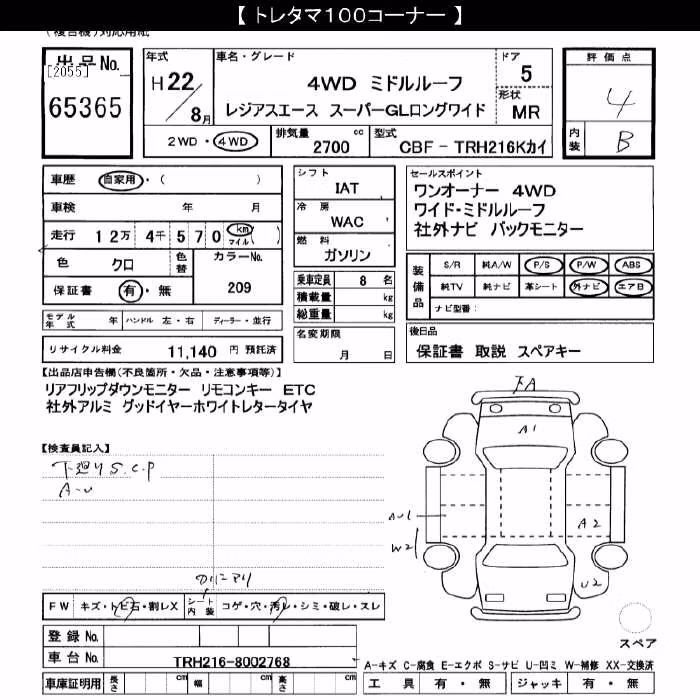 【 トレタマ100コーナー 】
(複合機)対応用紙
出品 No.
[2055]
65365
年式
H 22/8月
車名・グレード
4WD ミドルルーフ
レジアスエース スーパーGLロングワイド
ドア
5
形状
MR
2WD・4WD
排気量
2700 cc
型式
CBF - TRH216Kカイ
評価点
4
内装
B
車歴 自家用・( )
車検 年 月
走行 12万 4千 5 7 0 km マイル ( )
色 クロ
色替
カラーNo.
209
保証書 有・無
モデル年式 年 ハンドル 左・右 ディーラー・並行
リサイクル料金 11,140 円 預託済
シフト
IAT
冷房
WAC
燃料
ガソリン
乗車定員 8 名
積載量 kg
総重量 kg
名変期限
月 日
セールスポイント
ワンオーナー 4WD
ワイド・ミドルルーフ
社外ナビ バックモニター
装備品
S/R 純A/W P/S P/W ABS
純TV 純ナビ 革シート 外ナビ エアB
ナビ型番:
後日品
保証書 取説 スペアキー
【出品店申告欄(不良箇所・欠品・注意事項等)】
リアフリップダウンモニター リモコンキー ETC
社外アルミ グッドイヤーホワイトレタータイヤ
【検査員記入】
下廻り S.C.P
A-U
下A
A1
AU1
W2
A2
U2
FW キズ・トビ石・割レX
シート内装 コゲ・穴・汚レ・シミ・破レ・スレ
登録 No.
車台 No. TRH216-8002768
車庫証明用 長さ cm 幅 cm 高さ cm
スペア
A-キズ C-腐食 E-エクボ S-サビ U-凹ミ W-補修 XX-交換済
工具 有・無 ジャッキ 有・無